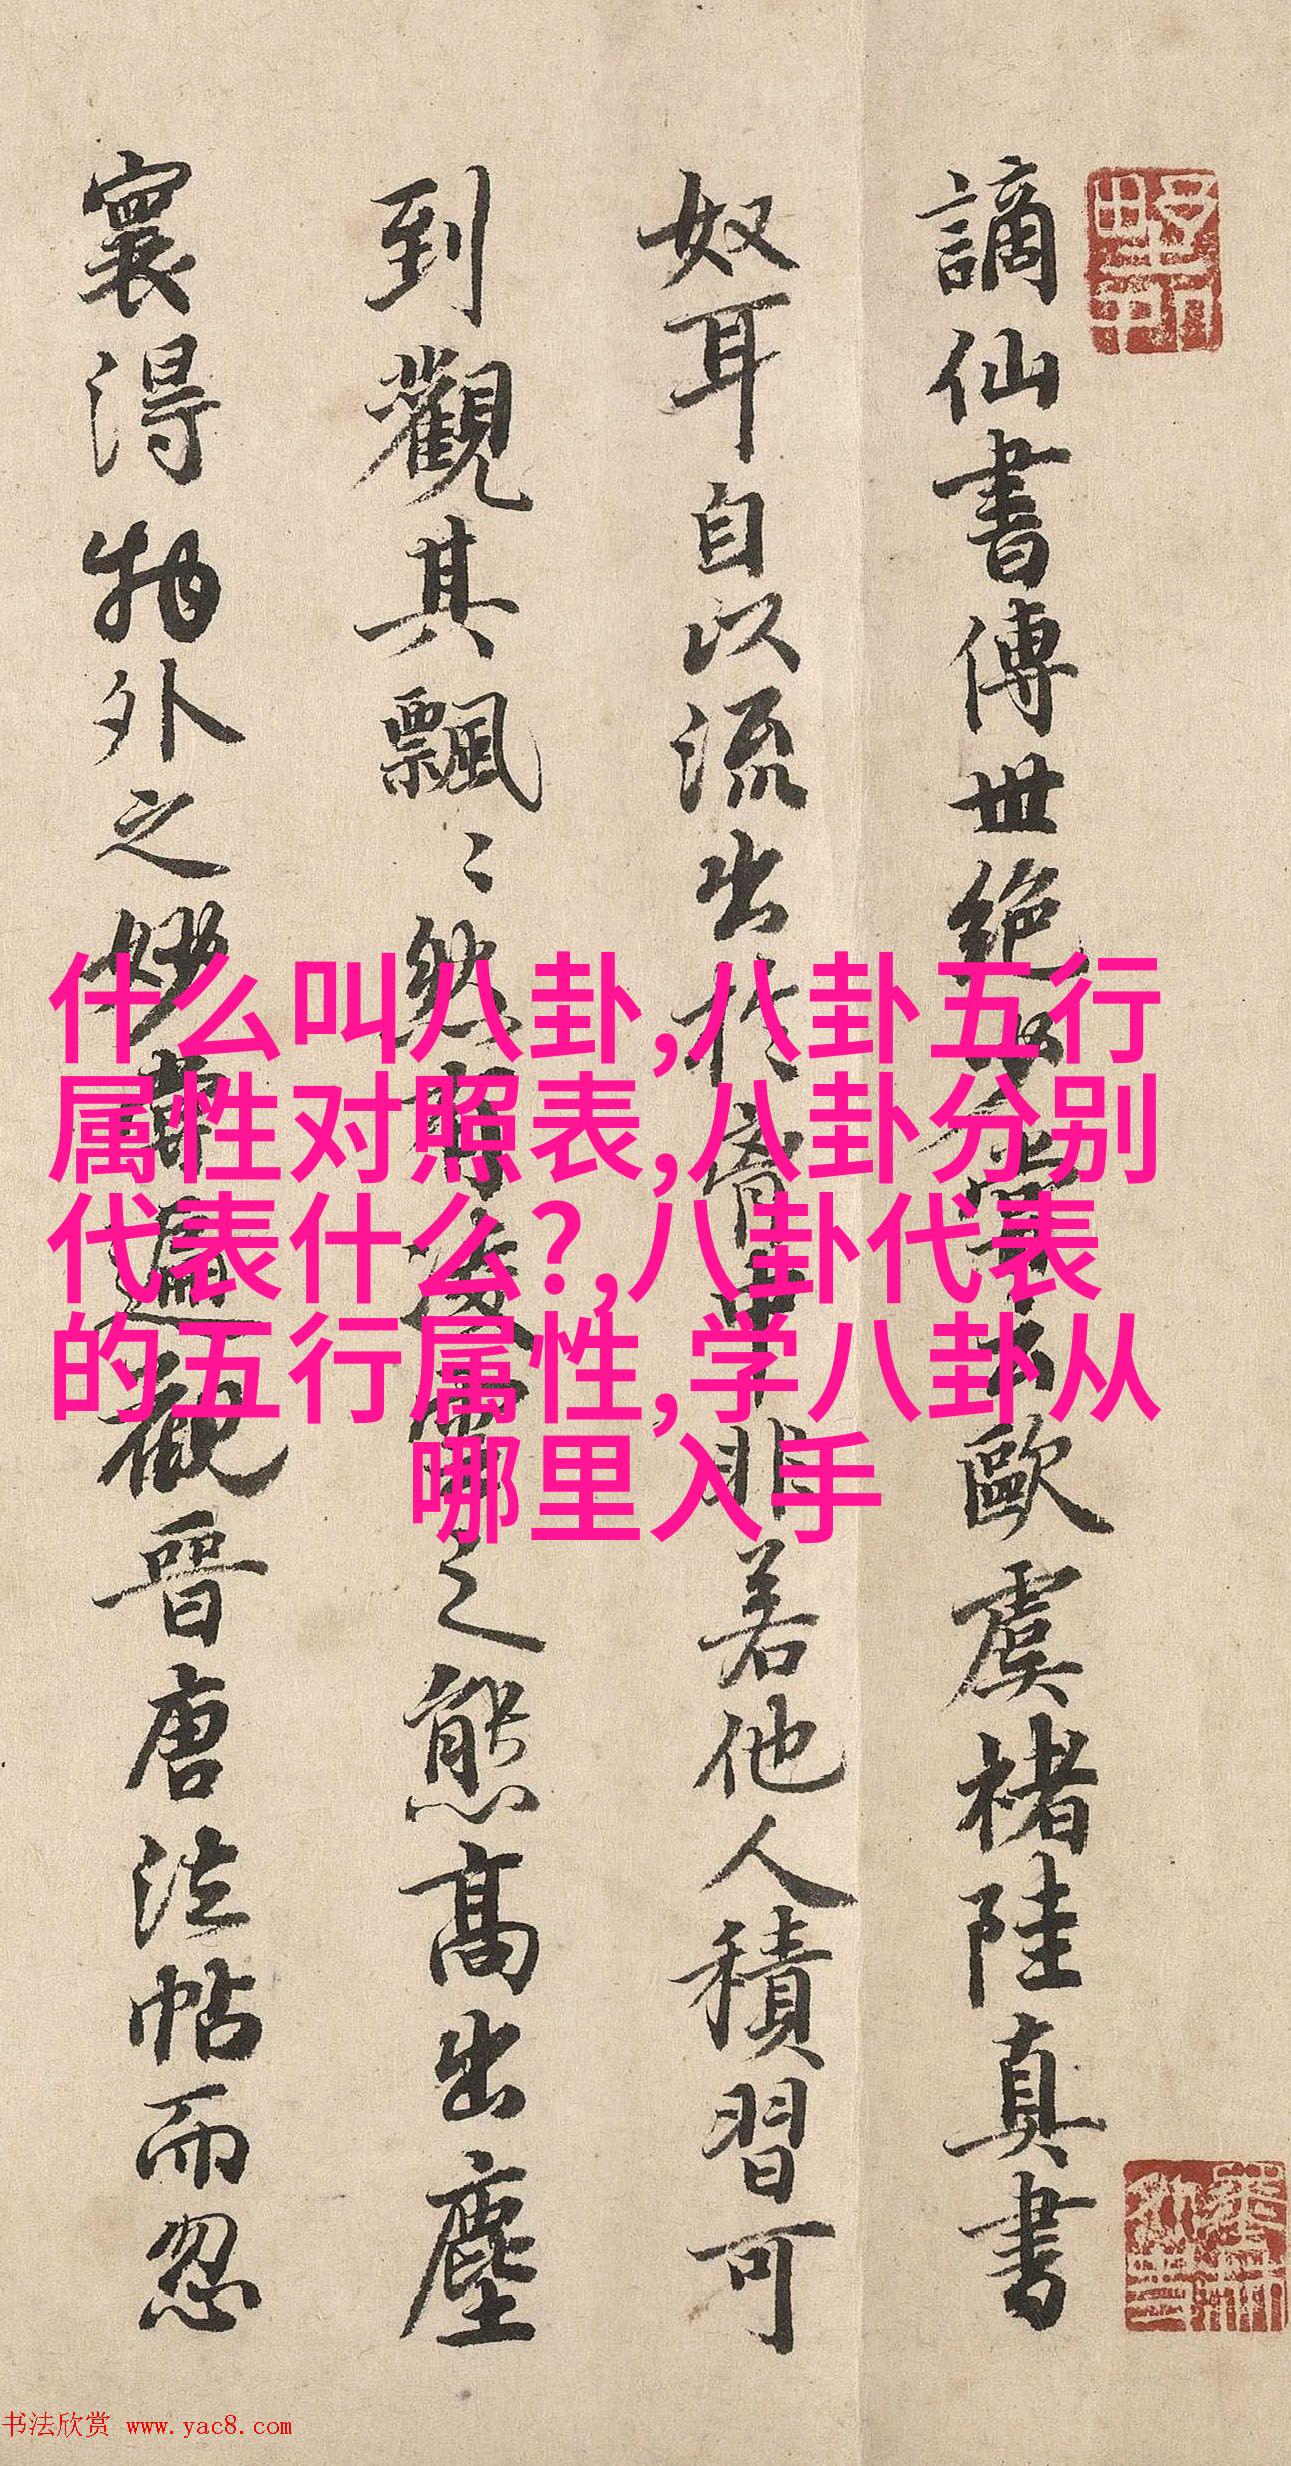 什么叫八卦,八卦五行
属性对照表,八卦分别
代表什么?,八卦代表
的五行属性,学八卦从
哪里入手
謫仙書傳世絕少嘗云歐虞褚陸真書
奴耳自以流出於胷中非若他人積習可
到觀其飄〻然有凌雲之態高出塵
寰得物外之妙嘗遍觀晉唐法帖而忽
书法欣赏 www.yac8.com